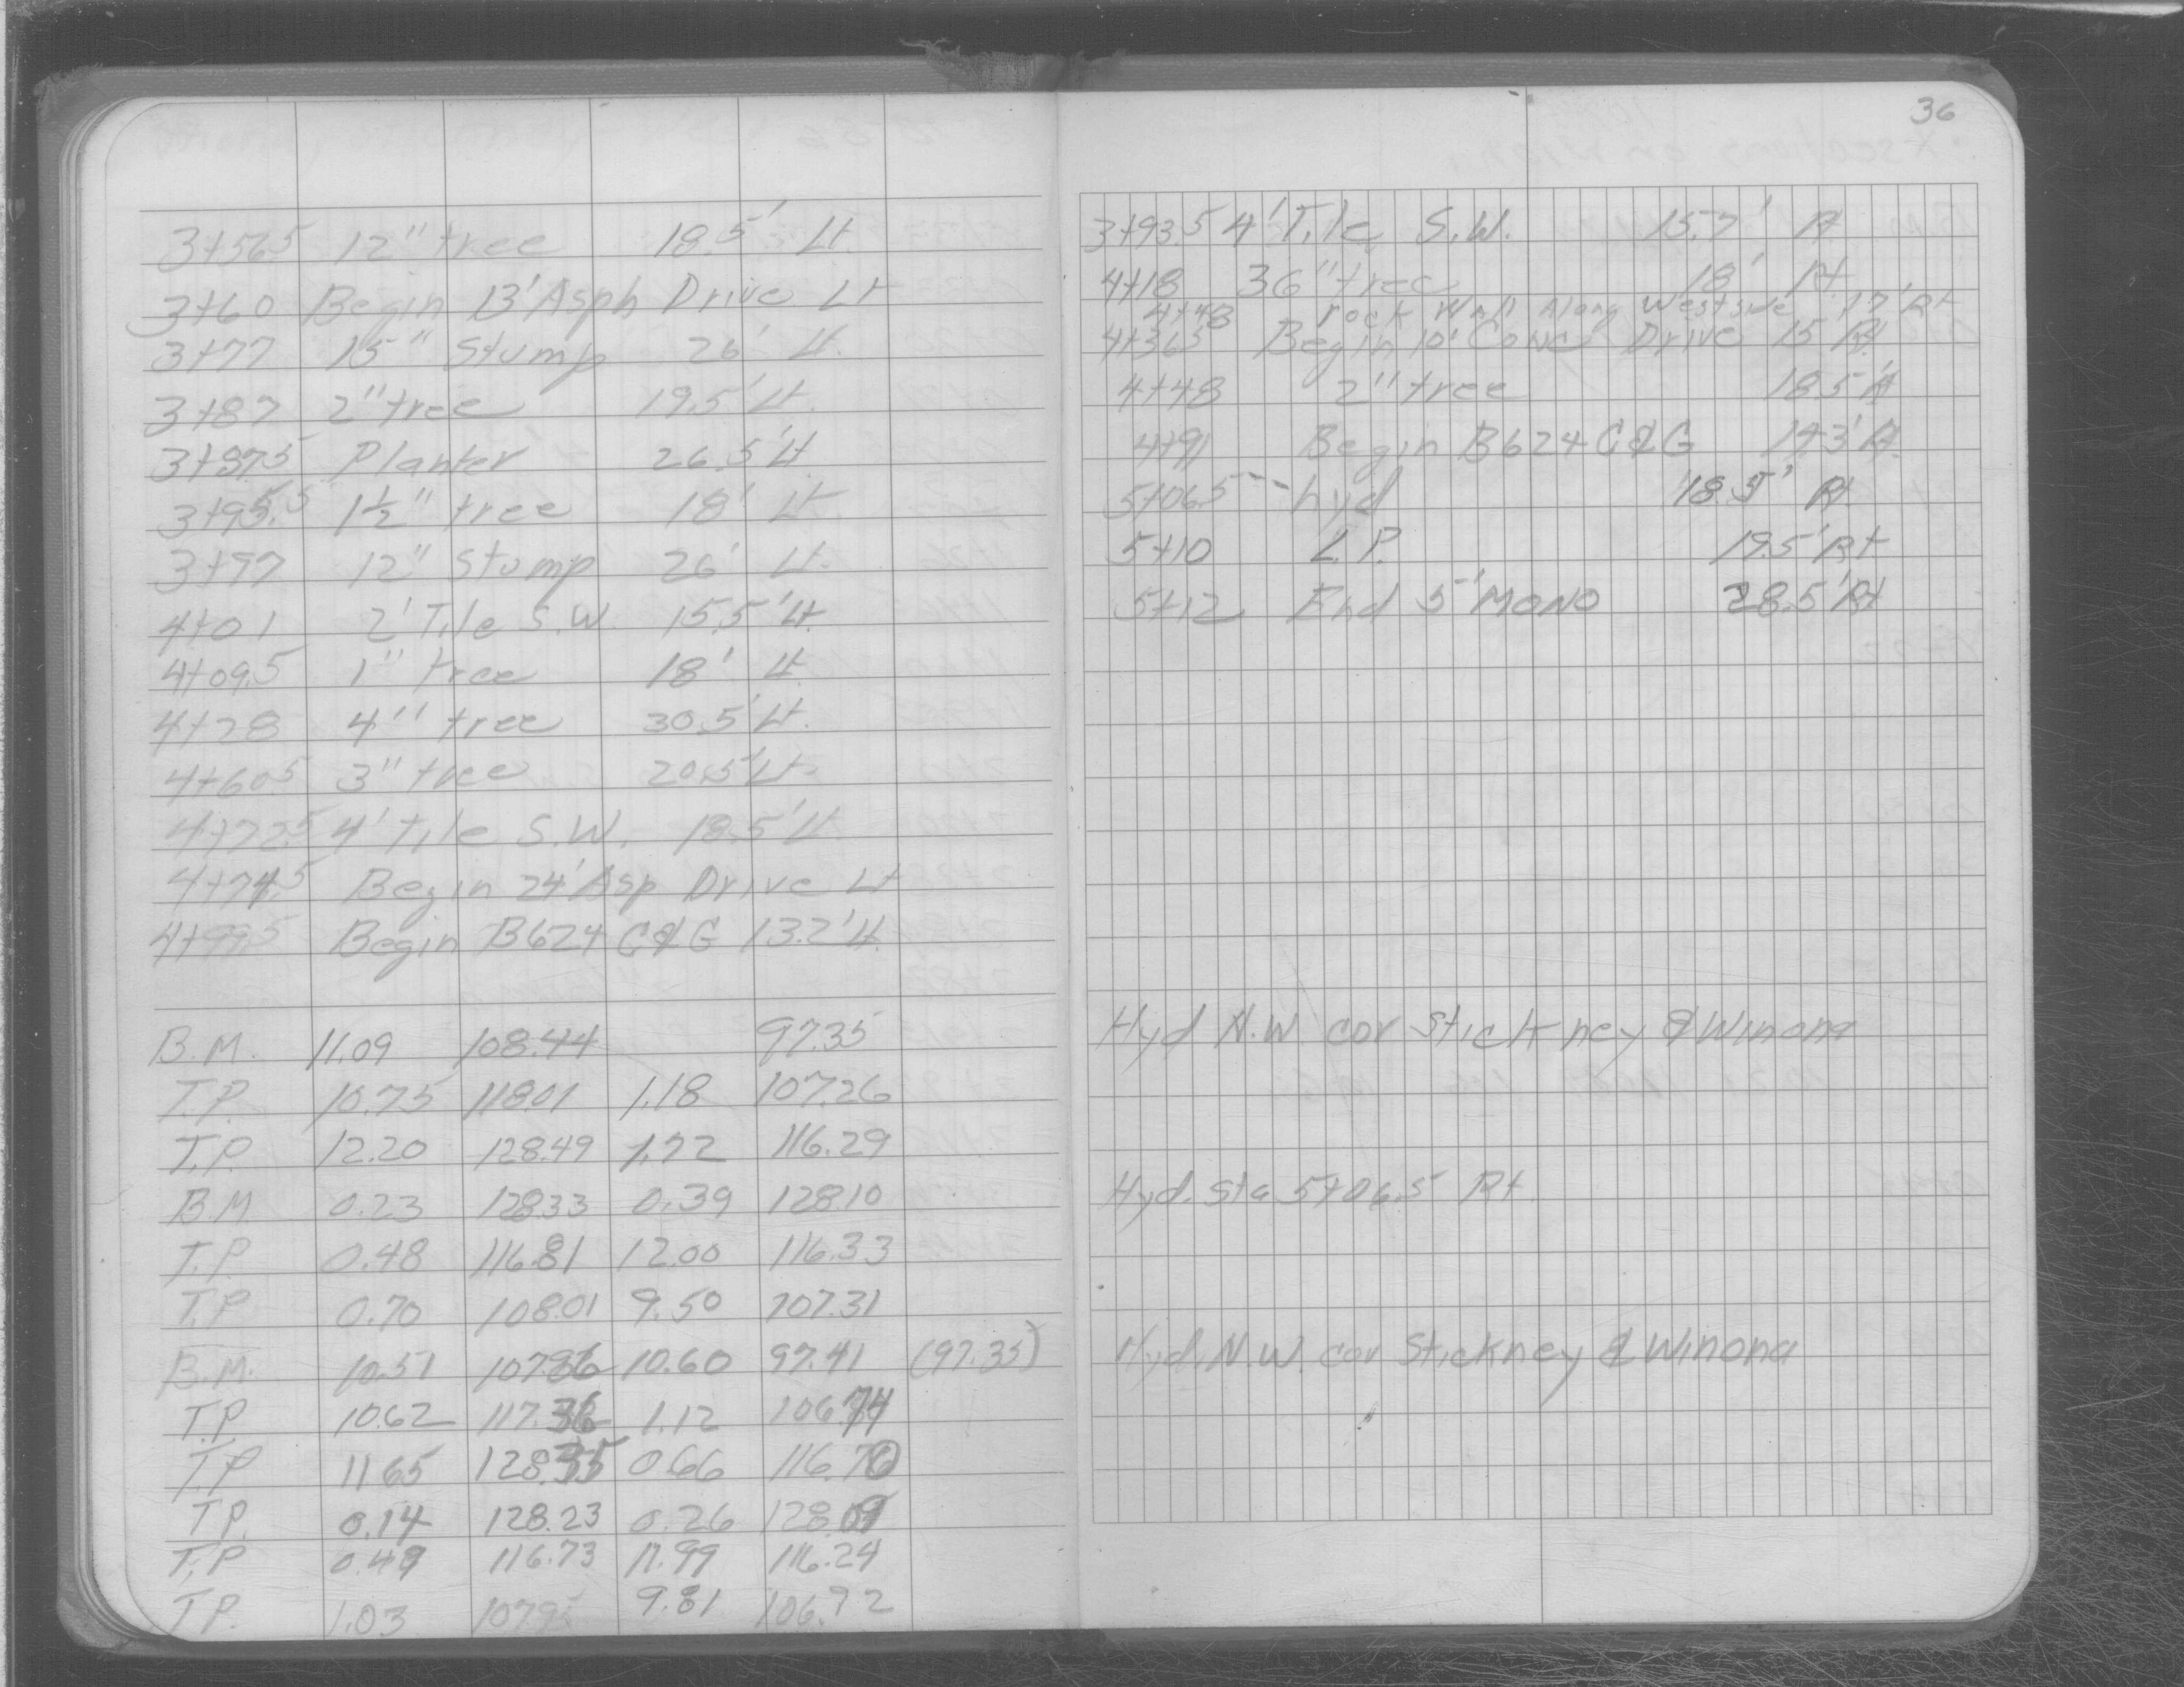 36
3+56.5 12" tree 18.5' Lt
3+60 Begin 13' Asph Drive Lt
3+77 15" Stump 26' Lt.
3+87 2" tree 19.5' Lt.
3+87.5 Planter 26.5' Lt
3+95.5 1½" tree 18' Lt
3+97 12" Stump 26' Lt.
4+01 2' Tile S.W 15.5' Lt.
4+09.5 1" tree 18' Lt.
4+28 4" tree 30.5' Lt.
4+60.5 3" tree 20.5' Lt.
4+72.5 4' tile S.W. 18.5' Lt.
4+74.5 Begin 24' Asp Drive Lt
4+99.5 Begin B624 C&G 13.2' Lt.
B.M. 11.09 108.44 97.35
T.P. 10.75 118.01 1.18 107.26
T.P. 12.20 128.49 1.72 116.29
B.M. 0.23 128.33 0.39 128.10
T.P. 0.48 116.81 12.00 116.33
T.P. 0.70 108.01 9.50 107.31
B.M. 10.51 107.86 10.60 97.41 (97.35)
T.P. 10.62 117.36 1.12 106.74
T.P 11.65 128.35 0.66 116.70
T.P. 0.14 128.23 0.26 128.09
T.P 0.49 116.73 11.99 116.24
T.P. 1.03 107.95 9.81 106.92
3+93.5 4' Tile S.W. 15.7' Rt
4+18 36" tree 18' Rt
4+48 rock Wall Along Westside 17' Rt
4+36.5 Begin 10' Conc Drive 15 Rt
4+48 2" tree 18.5' Rt
4+91 Begin B624 C&G 14.3' Rt.
5+06.5 hyd 18.5' Rt
5+10 L.P. 19.5' Rt
5+12 End 5' MONO 28.5' Rt
Hyd N.W. cor Stickney & Winona
Hyd. Sta 5+06.5 Rt
Hyd. N.W. cor Stickney & Winona